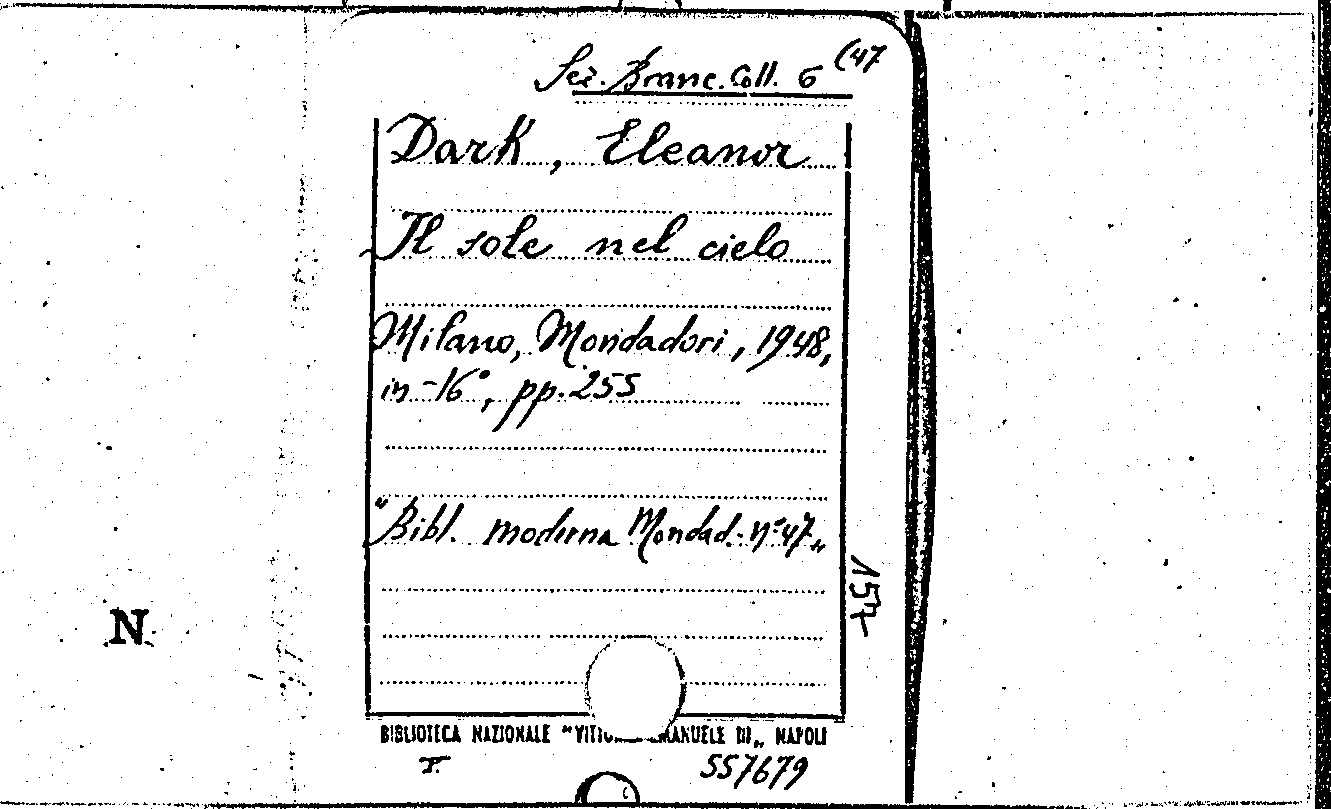 Sez. Branc. Coll. 6 (47
Dark, Eleanor
Il sole nel cielo
Milano, Mondadori, 1948,
in-16°, pp. 255
"Bibl. moderna Mondad. n° 47„
157
N
BIBLIOTECA NAZIONALE "VITTO EMANUELE III„ NAPOLI
T. 557679